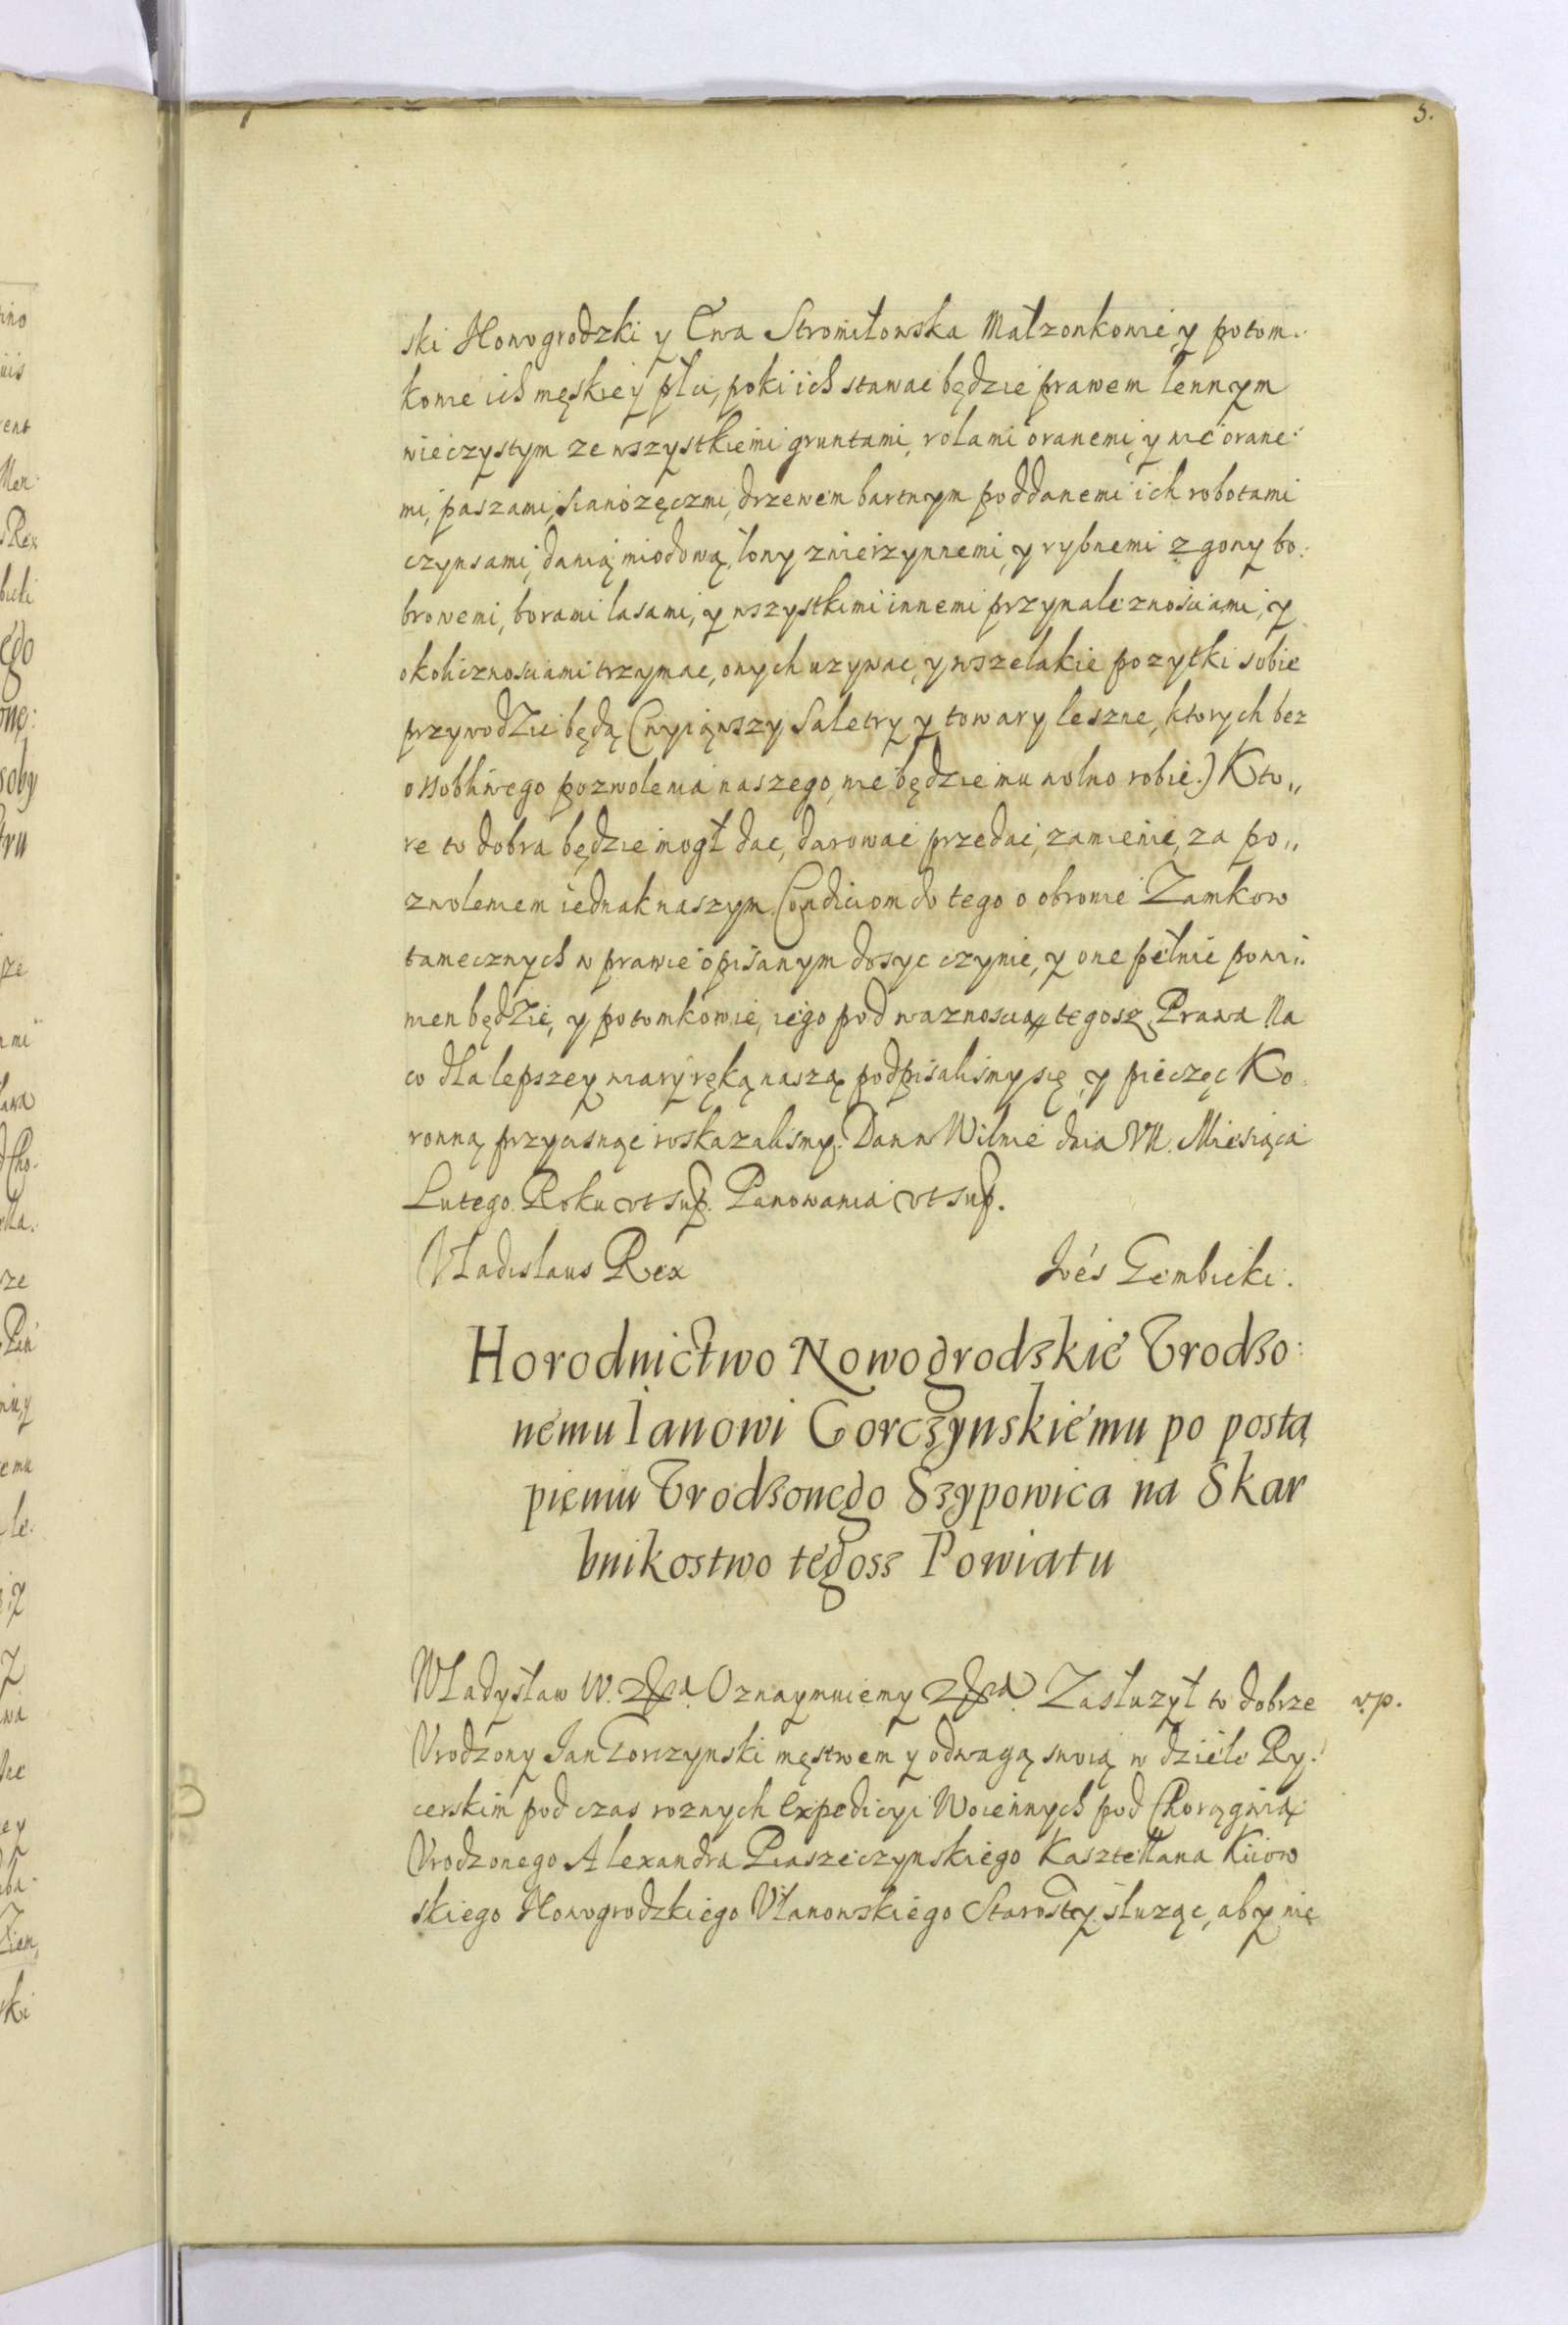 5.
ski Nowogrodzki y Ewa Stromiłowska Małzonkowie, y potom:
kowie ich męskiey płci, poki ich stawac będzie prawem lennym
wieczystym ze wszystkiemi gruntami, rolami oranemi, y nie orane:
mi, paszami, sianozęczmi, drzewem bartnym poddanemi ich robotami
czynsami, danią miodową, łowy zwierzynnemi, y rybnemi z gony bo:
browemi, borami lasami, y wszystkimi innemi przynaleznosciami, y
okolicznosciami trzymac, onych uzywac, y wszelakie pozytki sobie
przywodzic będą (wyiąwszy Saletry y towary leszne, ktorych bez
ossobliwego pozwolenia naszego, nie będzie mu wolno robic.) Kto„
re to dobra będzie mogł dac, darowac przedac, zamienic, za po„
zwoleniem iednak naszym. Condiciom do tego o obronie Zamkow
tamecznych w prawie opisanym dosyc czynic, y one pełnic powi:
nien będzie, y potomkowie, iego pod waznoscią tegosz Prawa Na
co dla lepszey wiary ręką naszą podpisalismy się, y pieczęc Ko
ronną przycisnąc roskazalismy. Dan w Wilnie dnia VII. Miesiąca
Lutego. Roku vt sup. Panowania vt sup.
Vladislaus Rex Jões Gembicki.
Horodnictwo Nowogrodzkie Vrodzo:
nemu Ianowi Gorczynskiemu po postą
pieniu Vrodzonego Szypowica na Skar
bnikostwo tegosz Powiatu
Władysław IV. Oznaymuiemy Zasłuzył to dobrze v.p.
Vrodzony Jan Gorczynski męstwem y odwagą swoią w dziele Ry:
cerskim pod czas roznych Expedicyi Woiennych pod Chorągwią
Vrodzonego Alexandra Piaseczynskiego Kasztellana Kiiow
skiego Nowogrodzkiego Vłanowskiego Starosty słuząc, aby nie